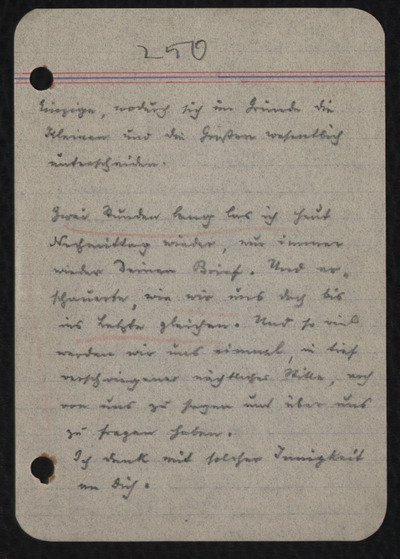 250
Einzige, wodurch sich im Grunde die
Kleinen und die Großen wesentlich
unterscheiden.
Zwei Stunden lang las ich heut
Nachmittag wieder, nur immer
wieder Deinen Brief. Und er-
schauerte, wie wir uns doch bis
ins Letzte gleichen. Und so viel
werden wir uns einmal, in tief
verschwiegener nächtlicher Stille, noch
von uns zu sagen und über uns
zu fragen haben.
Ich denk mit solcher Innigkeit
an Dich.